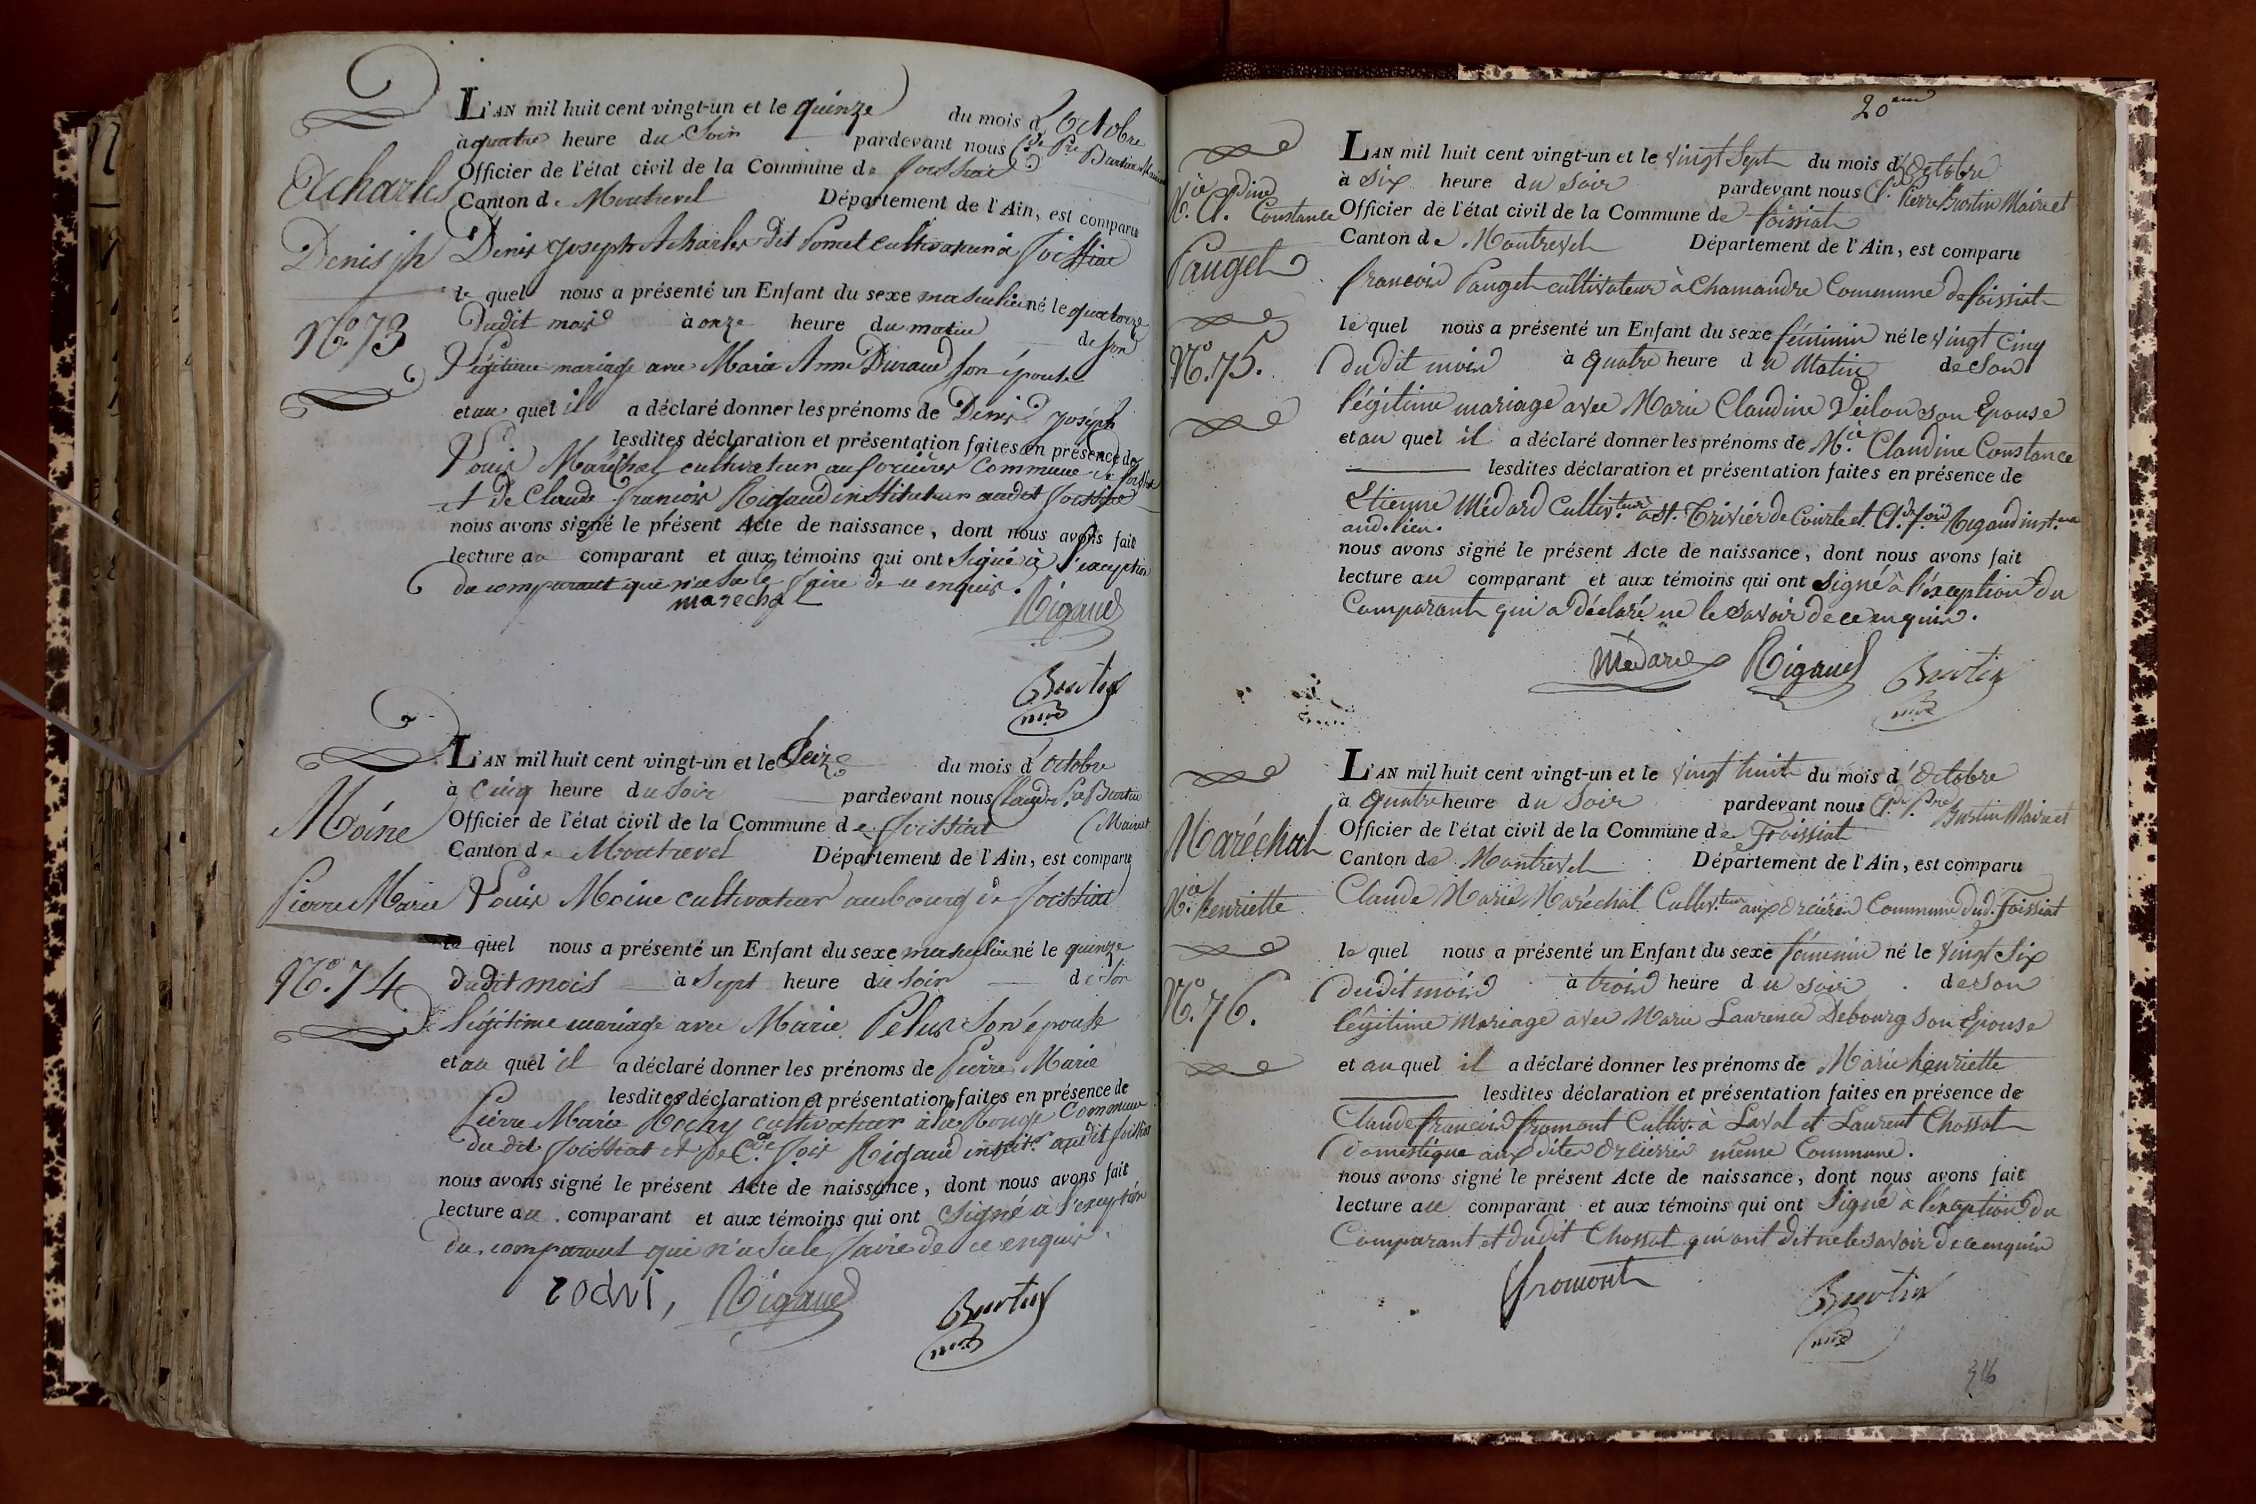 Acharles
Denis jh
N.o 73
L'AN mil huit cent vingt-un et le quinze du mois d'Octobre
à quatre heure du Soir pardevant nous C.de P.re Burtin Maire et
Officier de l'état civil de la Commune de foissiat
Canton de Montrevel Département de l'Ain, est comparu
Denis Joseph Acharles dit Poncet cultivateur à foissiat
le quel nous a présenté un Enfant du sexe masculin né le quatorze
dudit mois à onze heure du matin de son
légitime mariage avec Marie Anne Durand son épouse
et au quel il a déclaré donner les prénoms de Denis Joseph
lesdites déclaration et présentation faites en présence de
Louis Maréchal cultivateur au sorcières Commune de foissiat
et de Claude françois Rigaud instituteur audit foissiat
nous avons signé le présent Acte de naissance, dont nous avons fait
lecture au comparant et aux témoins qui ont signé à l'exception
du comparant que n'a su le faire de ce enquis.
marechal Rigaud
Burtin
mre
Moine
Pierre Marie
N.o 74
L'AN mil huit cent vingt-un et le Seize du mois d'octobre
à cinq heure du Soir pardevant nous Claude P.re Burtin
Officier de l'état civil de la Commune de foissiat Maire et
Canton de Montrevel Département de l'Ain, est comparu
Louis Moine cultivateur au bourg de foissiat
le quel nous a présenté un Enfant du sexe masculin né le quinze
dudit mois à sept heure du soir de son
légitime mariage avec Marie Pelus son épouse
et au quel il a déclaré donner les prénoms de Pierre Marie
lesdites déclaration et présentation faites en présence de
Pierre Marie Rochy cultivateur à la Rouge Commune
du dit foissiat et de C.de f.ois Rigaud instit.r audit foissiat
nous avons signé le présent Acte de naissance, dont nous avons fait
lecture au comparant et aux témoins qui ont signé à l'exception
du comparant qui n'a su le faire de ce enquis.
rochi, Rigaud Burtin
mre
20eme
M.ie Cl.dine Constance
Pauget
N.o 75.
L'AN mil huit cent vingt-un et le vingt Sept du mois d'Octobre
à Six heure du soir pardevant nous Cl.de Pierre Burtin Maire et
Officier de l'état civil de la Commune de foissiat
Canton de Montrevel Département de l'Ain, est comparu
françois Pauget cultivateur à Chamandre Commune de foissiat
le quel nous a présenté un Enfant du sexe féminin né le vingt cinq
du dit mois à quatre heure du Matin de son
légitime mariage avec Marie Claudine Veilon son Epouse
et au quel il a déclaré donner les prénoms de M.ie Claudine Constance
lesdites déclaration et présentation faites en présence de
Etienne Médard Cultiv.teur à St. Trivier de Courte et Cl.de f.ois Rigaud inst.eur
aud. lieu.
nous avons signé le présent Acte de naissance, dont nous avons fait
lecture au comparant et aux témoins qui ont signé à l'éxception du
Comparant qui a déclaré ne le savoir de ce enquis.
Médard Rigaud Burtin
mre
Maréchal
M.ie henriette
N.o 76.
L'AN mil huit cent vingt-un et le vingt huit du mois d'Octobre
à quatre heure du Soir pardevant nous Cl.de P.re Burtin Maire et
Officier de l'état civil de la Commune de Foissiat
Canton de Montrevel Département de l'Ain, est comparu
Claude Marie Maréchal Cultiv.teur aux orcières Commune dud. Foissiat
le quel nous a présenté un Enfant du sexe féminin né le vingt Six
dudit mois à trois heure du soir de son
légitime mariage avec Marie Laurence Debourg son Epouse
et au quel il a déclaré donner les prénoms de Marie henriette
lesdites déclaration et présentation faites en présence de
Claude françois fromont Cultiv. à Laval et Laurent Chossat
domestique aux dites orcières même Commune.
nous avons signé le présent Acte de naissance, dont nous avons fait
lecture au comparant et aux témoins qui ont signé à l'éxception du
Comparant et dudit Chossat qui ont dit ne le savoir de ce enquis
fromont Burtin
mre